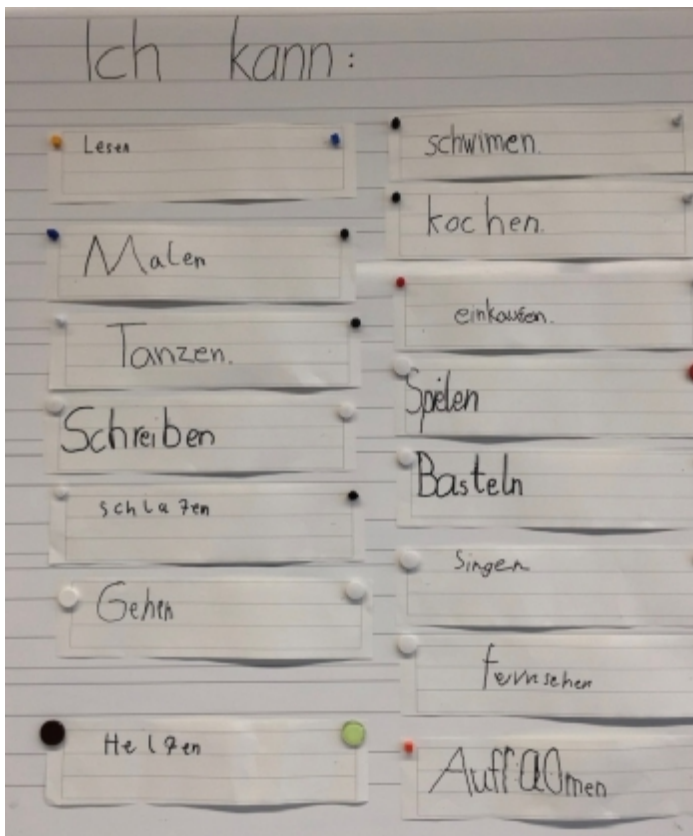 Ich kann:
Lesen
Malen
Tanzen.
Schreiben
schlafen
Gehen
Helfen
schwimen.
kochen.
einkaufen.
Spielen
Basteln
Singen
fernsehen